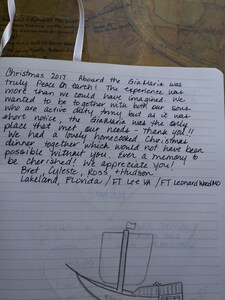 Christmas 2017. Aboard the Gia Maria was
truly Peace on Earth! The experience was
more than we could have imagined. We
wanted to be together with both our sons
who are active duty Army but as it was
short notice, the Gia Maria was the only
place that met our needs - thank you!!
We had a lovely homecooked Christmas
dinner together which would not have been
possible without you. Ever a memory to
be cherished! We appreciate you!
Bret, Cyleste, Ross, + Hudson
Lakeland, Florida / FT Lee VA / FT Leonard Wood MO